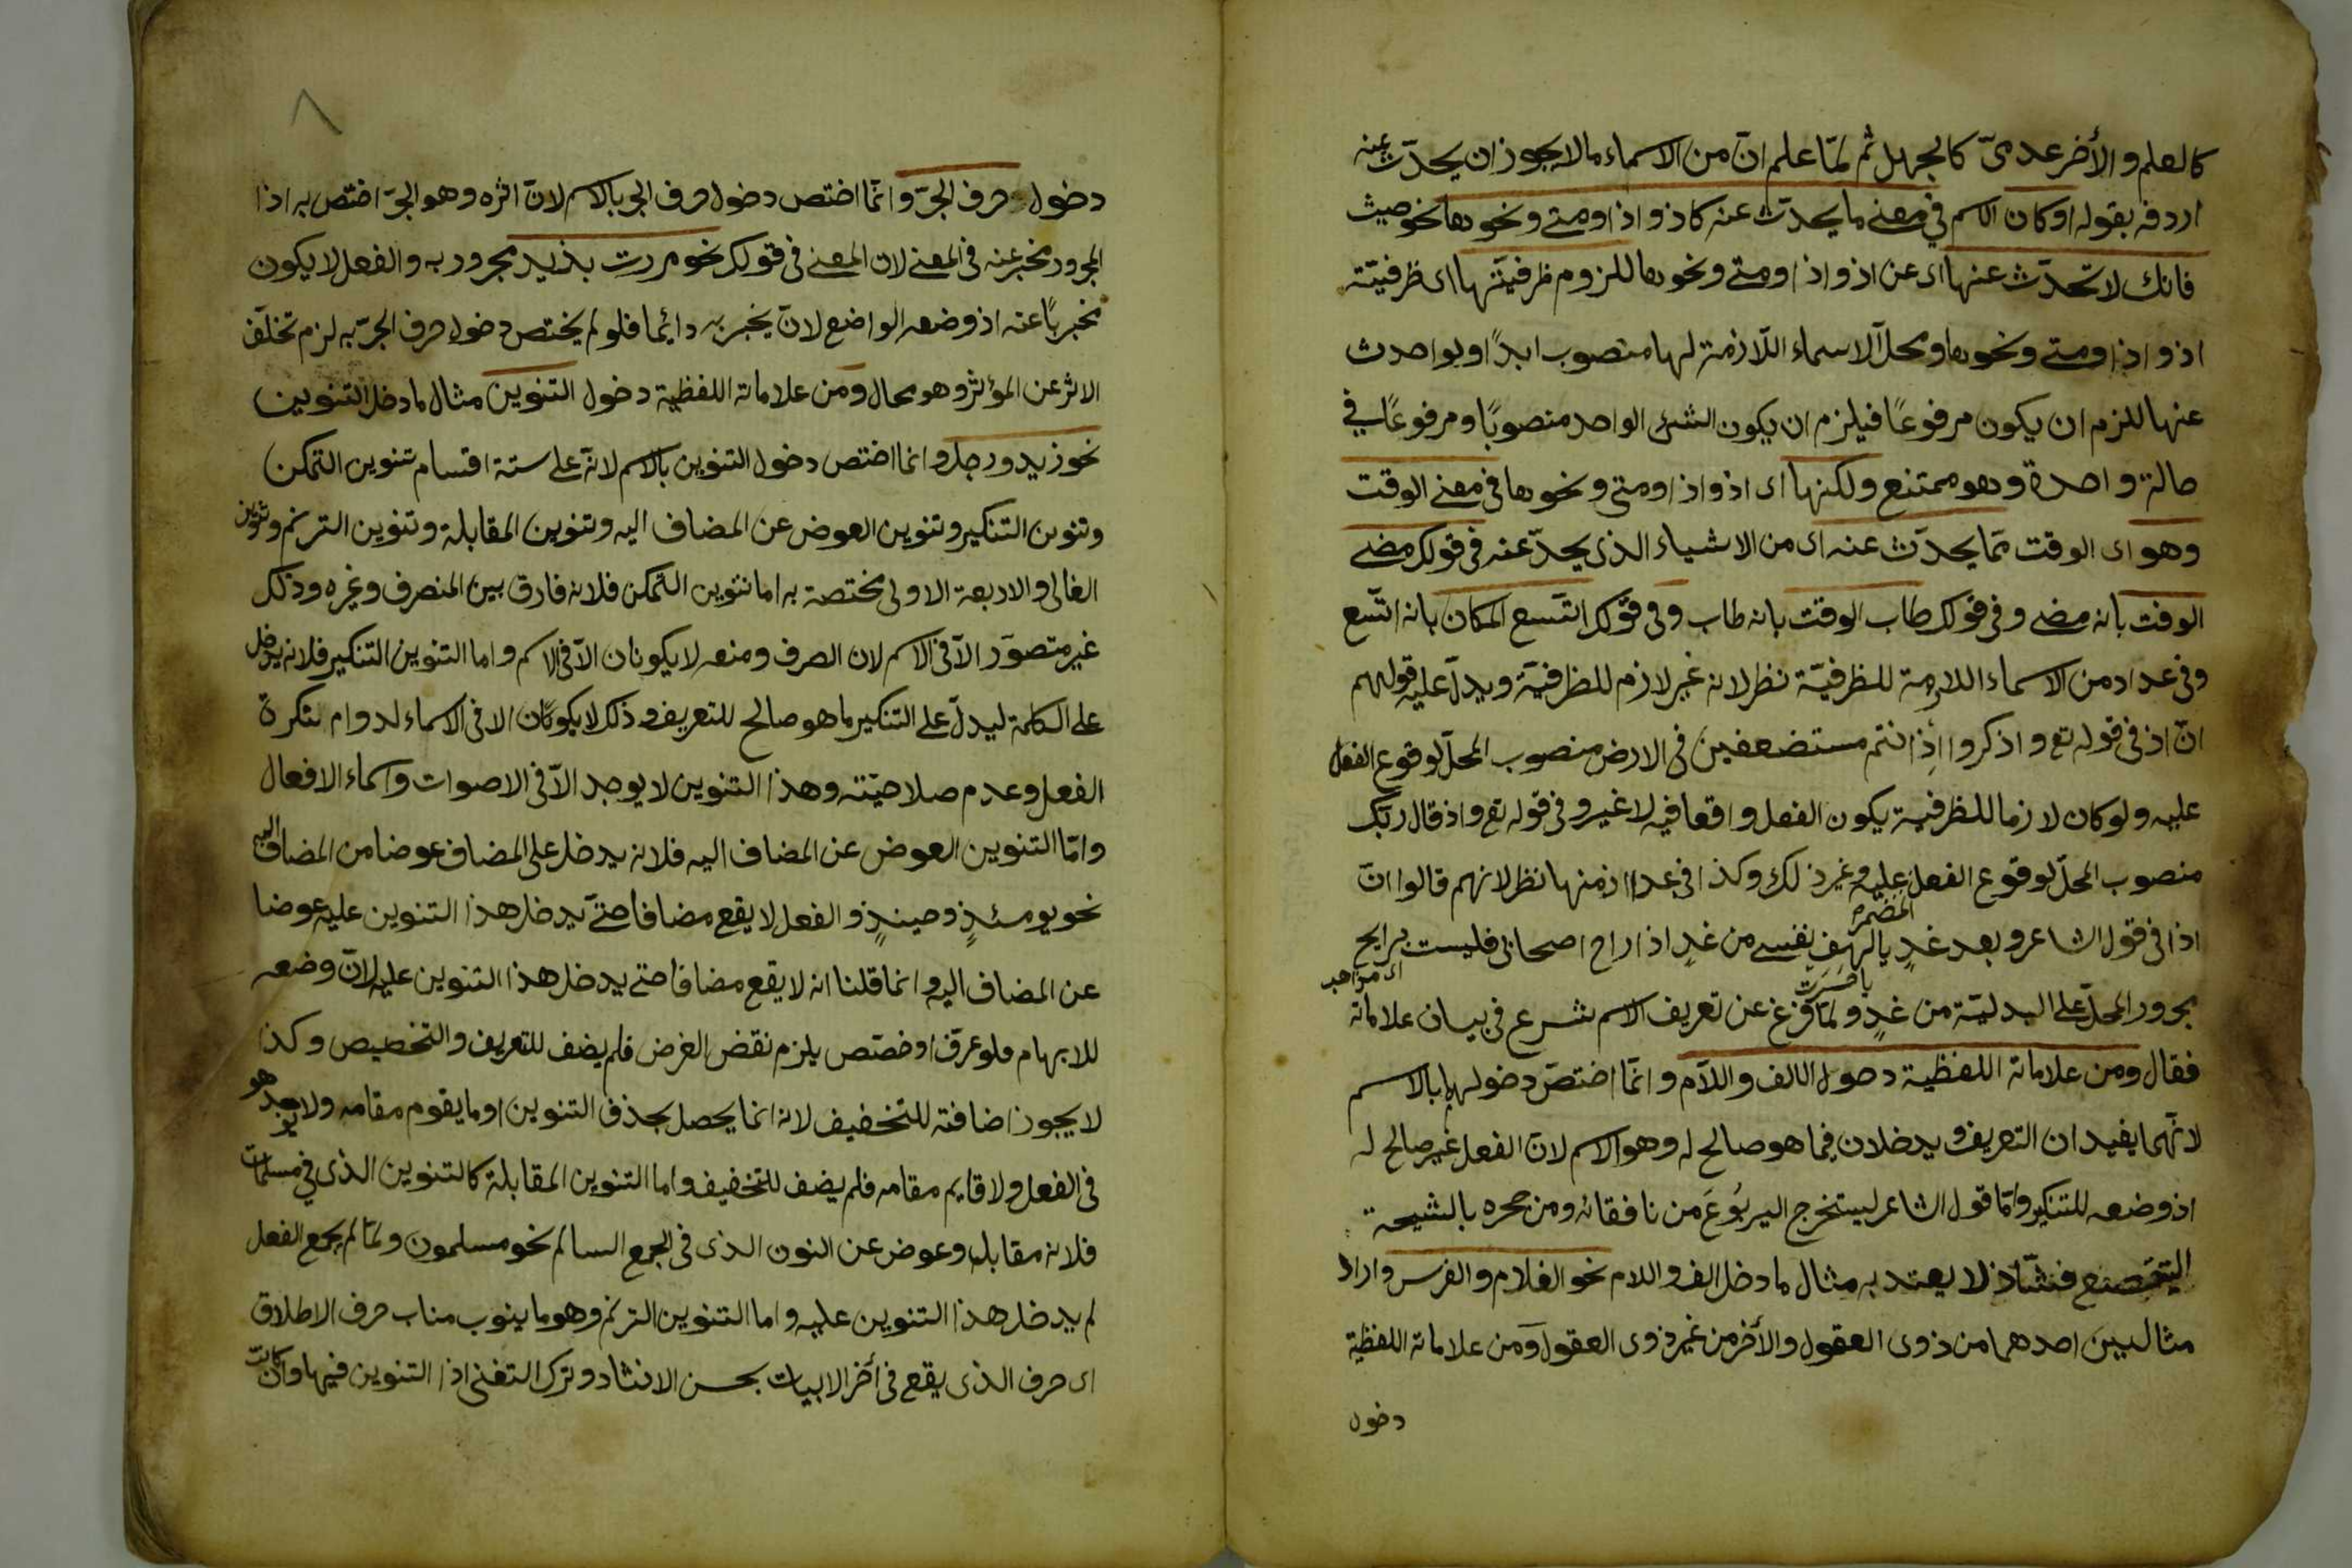 كالعلم والأخر عدمىّ كالجهل ثم لمّا علم انّ من الاسماء مالا يجوز ان يحدّث عنه
اردفه بقوله اوكان الاسم في معنى ما يحدّث عنه كاذ واذا ومتى ونحوها نحو حيث
فانك لا تحدّث عنها اى عن اذ واذا ومتى ونحوها للزوم ظرفيّتها اى ظرفيّة
اذ واذا ومتى ونحوها ومحلّ الاسماء اللّازمة لها منصوب ابدًا ولو احدث
عنها للزم ان يكون مرفوعًا فيلزم ان يكون الشئ الواحد منصوبًا ومرفوعًا في
حالة واحدة وهو ممتنع ولكنها اى اذ واذا ومتى ونحوها في معنى الوقت
وهو اى الوقت ممّا يحدّث عنه اى من الاشياء الذى يحدّ عنه فى قولك مضى
الوقت بانه مضى وفى قولك طاب الوقت بانه طاب وفى قولك اتّسع المكان بانه اتّسع
وفى عداد من الاسماء اللازمة للظرفيّة نظر لانه غير لازم للظرفيّة ويدلّ عليه قولهم
انّ اذ فى قوله تع واذكروا اذ انتم مستضعفين فى الارض منصوب المحلّ لوقوع الفعل
عليه ولو كان لازما للظرفية يكون الفعل واقعا فيه لا غير وفى قوله تع واذ قال ربّك
منصوب المحلّ لوقوع الفعل عليه وغير ذلك وكذا فى عد اذ منها نظر لانهم قالوا انّ
المضمرة
اذا فى قول الشاعر وبعد غدٍ يالهف نفسى من غدٍ اذا راح اصحابى فلست برايح
مجرور المحلّ على البدليّة من غدٍ ولمّا فرغ عن تعريف الاسم شرع فى بيان علاماته
فقال ومن علاماته اللفظية دخول الالف واللّام وانّما اختصّ دخولهما بالاسم
لانّهما يفيدان التعريف ويدخلان فيما هو صالح له وهو الاسم لانّ الفعل غير صالح له
اذ وضعه للتنكير وامّا قول الشاعر ليستخرج اليربُوعَ من نافقائه ومن جحره بالشيحة
اليتقصّع فشاذ لا يعتد به مثال ما دخل الف واللام نحو الغلام والفرس واراد
مثالين احدهما من ذوى العقول والأخر من غير ذوى العقول ومن علاماته اللفظية
دخول
٨
دخول حرف الجرّ وانّما اختص دخول حرف الجر بالاسم لانّ اثره وهو الجرّ اختص به اذا
المجرور مخبر عنه فى المعنى لان المعنى فى قولك نحو مررت بزيد مجرور به والفعل لا يكون
مخبرًا عنه اذ وضعه الواضع لانّ يخبر به دائما فلو لم يختص دخول حرف الجرّ به لزم تخلّف
الاثر عن المؤثر وهو محال ومن علاماته اللفظية دخول التنوين مثال ما دخل التنوين
نحو زيد ورجل وانما اختص دخول التنوين بالاسم لانّه على ستة اقسام تنوين التمكن
وتنوين التنكير وتنوين العوض عن المضاف اليه وتنوين المقابلة وتنوين الترنم وتنوين
الغالى والاربعة الاولى مختصة به اما تنوين التمكن فلانه فارق بين المنصرف وغيره وذلك
غير متصوّر الّا فى الاسم لان الصرف ومنعه لا يكونان الّا فى الاسم واما التنوين التنكير فلانه يدخل
على الكلمة ليدلّ على التنكير ما هو صالح للتعريف وذلك لا يكونان الا فى الاسماء لدوام نكرة
الفعل وعدم صلاحيّته وهذا التنوين لا يوجد الّا فى الاصوات واسماء الافعال
وامّا التنوين العوض عن المضاف اليه فلانه يدخل على المضاف عوضا من المضاف اليه
نحو يومئذٍ وحينئذٍ والفعل لا يقع مضافا حتى يدخل هذا التنوين عليه عوضا
عن المضاف اليه وانما قلنا انه لا يقع مضافا حتى يدخل هذا التنوين عليه لانّ وضعه
للابهام فلو عرّف او خصّص يلزم نقض الغرض فلم يضف للتعريف والتخصيص وكذا
لا يجوز اضافته للتخفيف لانه انما يحصل بحذف التنوين او ما يقوم مقامه ولا يوجد هو
فى الفعل ولا قايم مقامه فلم يضف للتخفيف واما التنوين المقابلة كالتنوين الذى في مسلمات
فلانه مقابل وعوض عن النون الذى فى الجمع السالم نحو مسلمون ولمّا لم يجمع الفعل
لم يدخل هذا التنوين عليه واما التنوين الترنم وهو ما ينوب مناب حرف الاطلاق
اى حرف الذى يقع فى أخر الابيات بحسن الانشاد وترك التغنى اذا التنوين فيها وان كانت